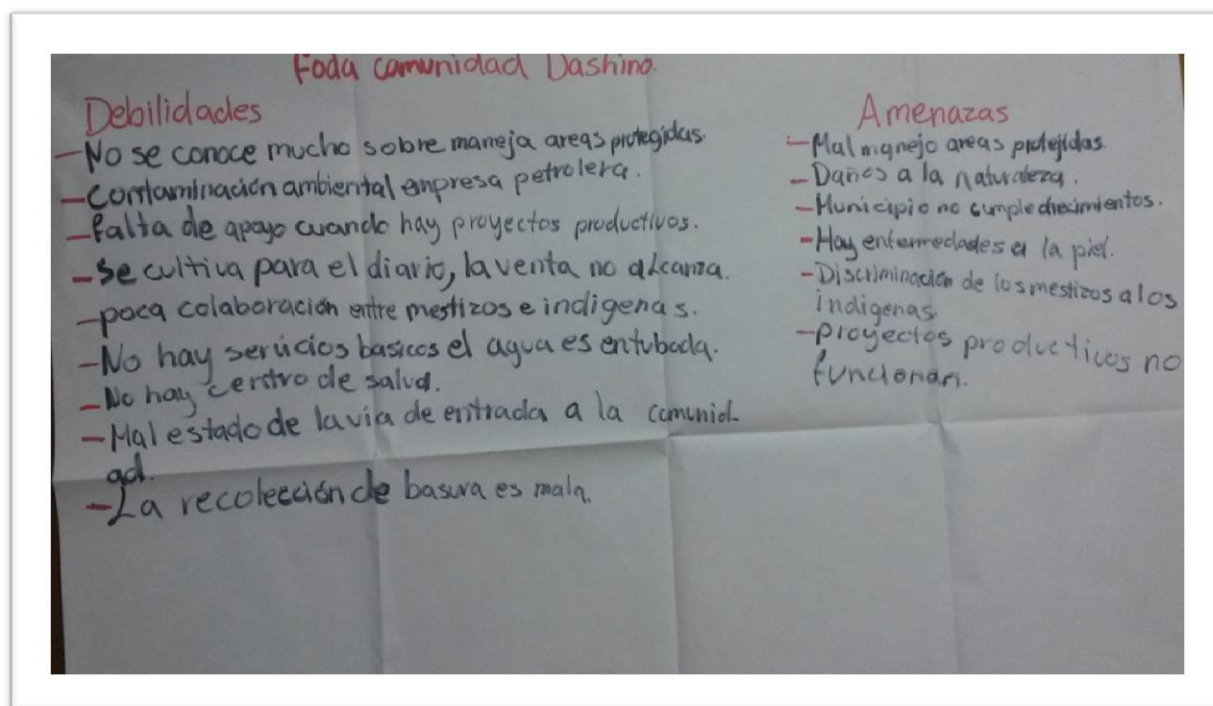 Foda comunidad Dashino.
Debilidades
- No se conoce mucho sobre maneja areas protegidas.
- Contaminación ambiental empresa petrolera.
- falta de apoyo cuando hay proyectos productivos.
- se cultiva para el diario, la venta no alcanza.
- poca colaboración entre mestizos e indigenas.
- No hay servicios basicos el agua es entubada.
- No hay centro de salud.
- Mal estado de la via de entrada a la comunid-
ad.
- La recolección de basura es mala.
Amenazas
- Mal manejo areas protejidas.
- Daños a la naturaleza.
- Municipio no cumple
- Hay enfermedades a la piel.
- Discriminación de los mestizos a los
indigenas.
- proyectos productivos no
funcionan.